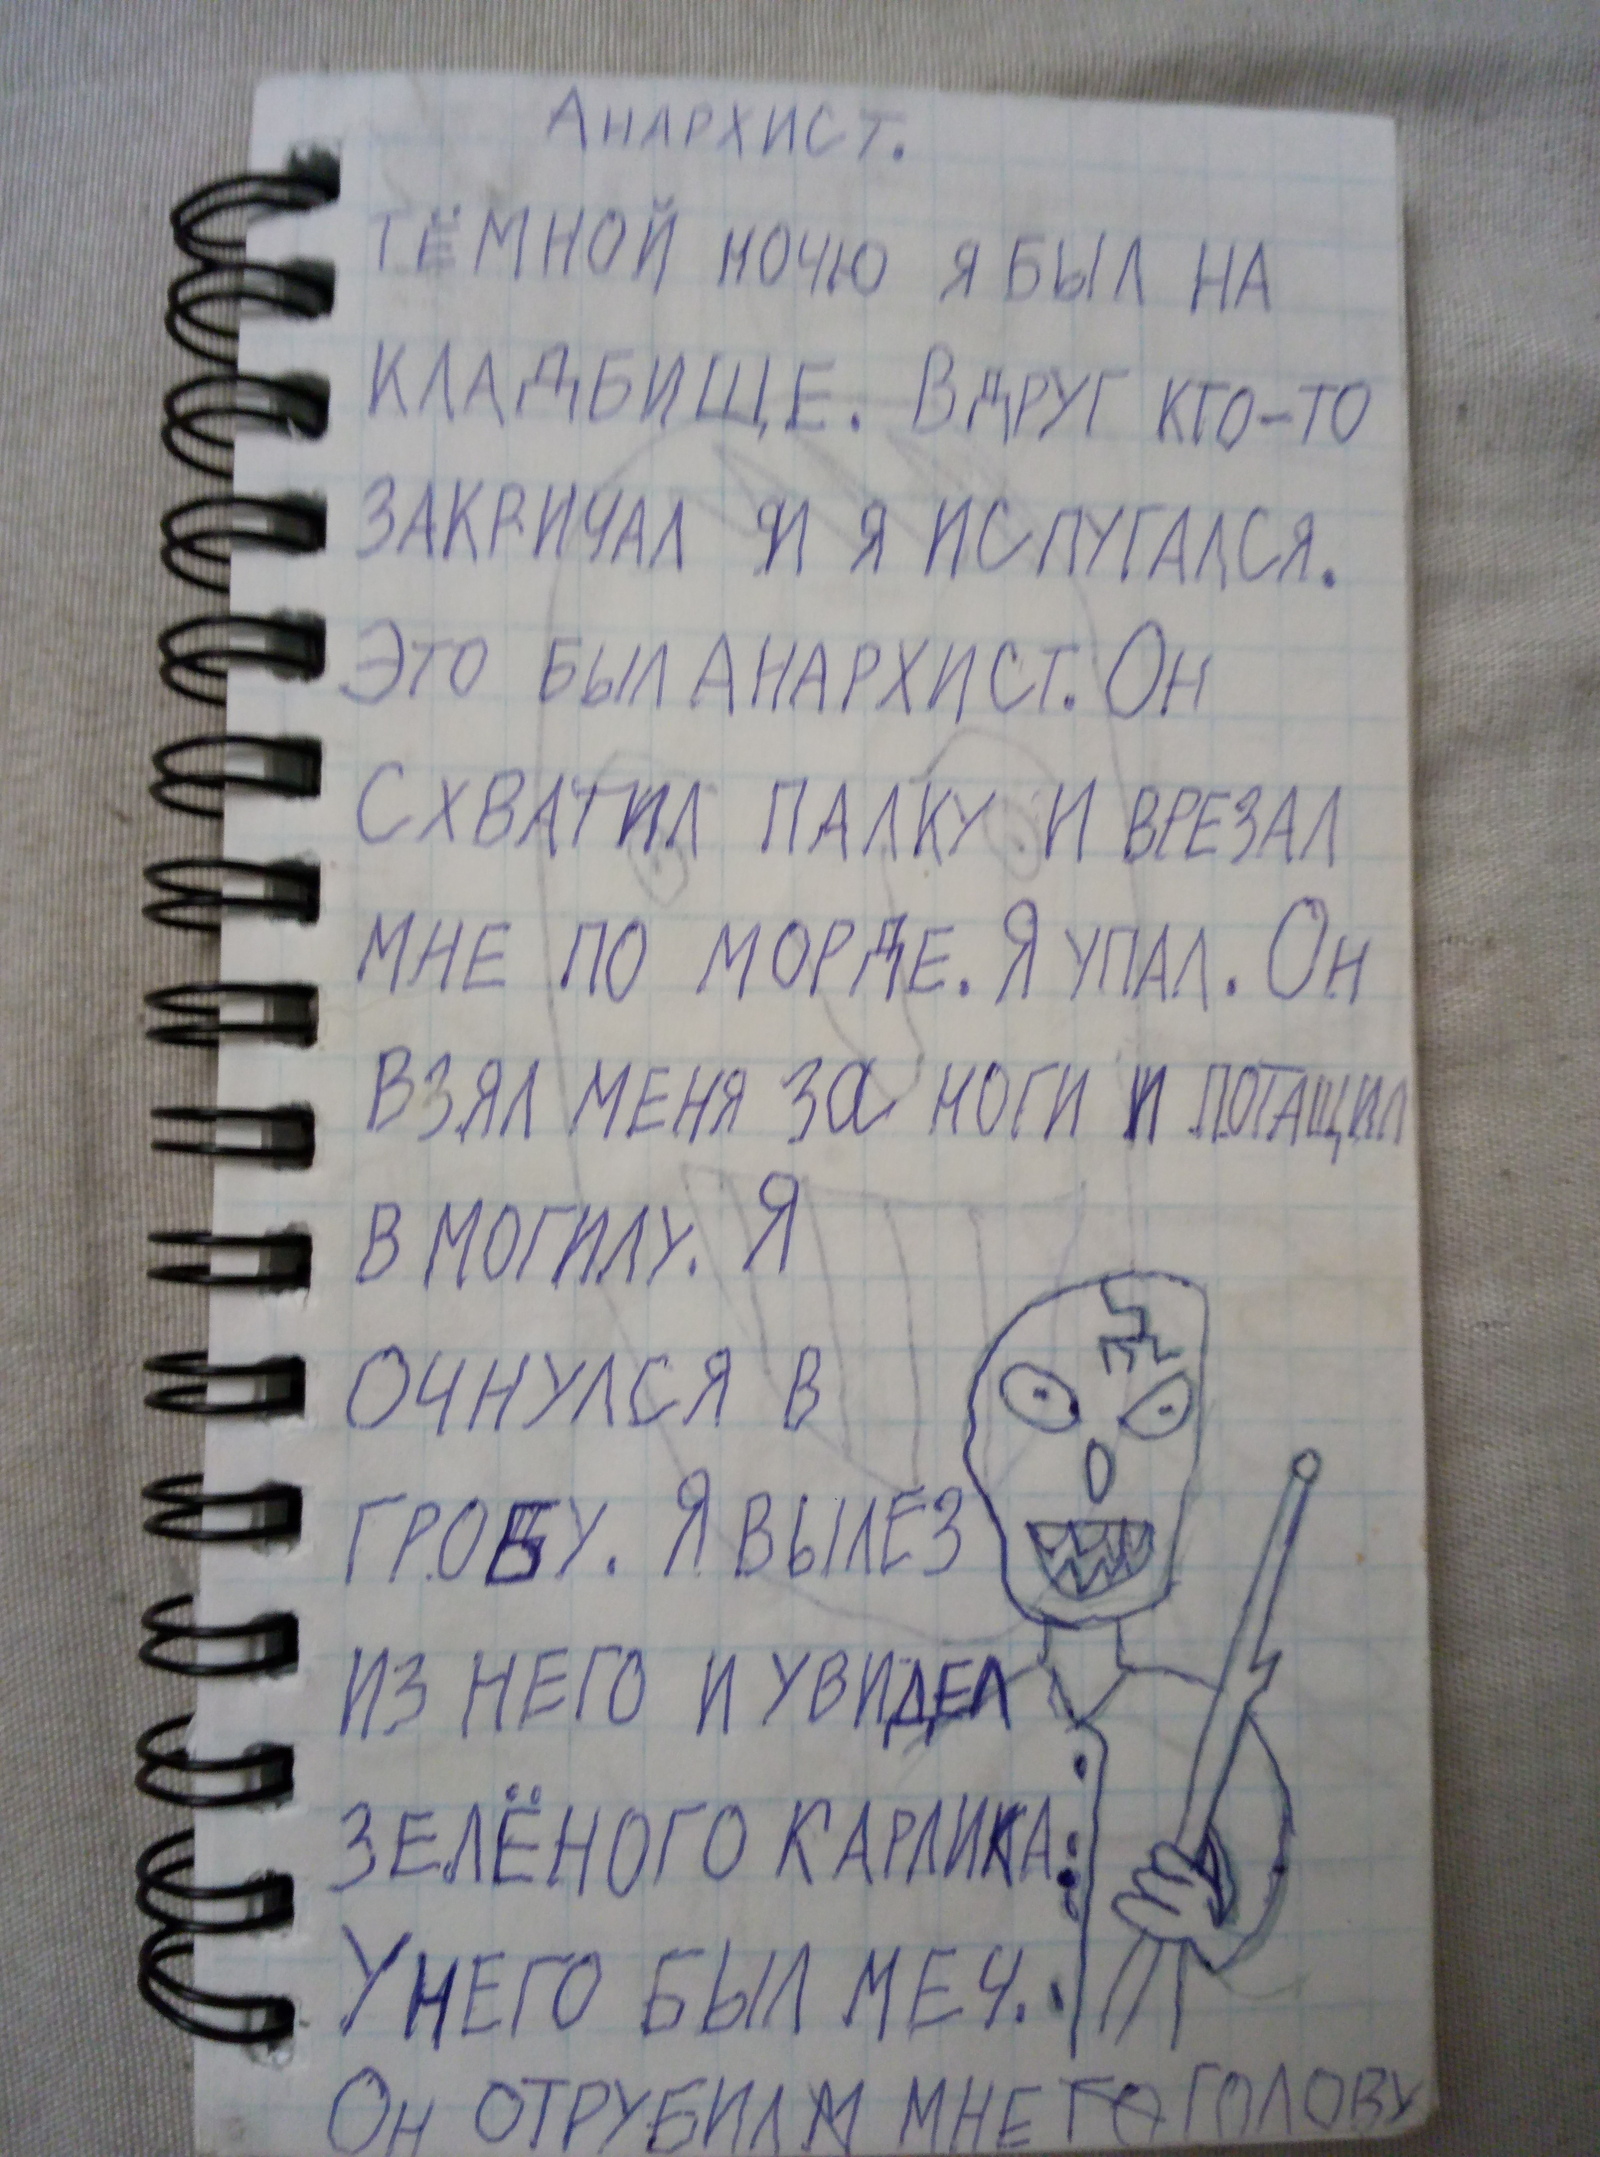 Анархист.
Тёмной ночю я был на
кладбище. Вдруг кто-то
закричал и я испугался.
Это был анархист. Он
схватил палку и врезал
мне по морде. Я упал. Он
взял меня за ноги и потащил
в могилу. Я
очнулся в
гробу. Я вылез
из него и увидел
зелёного карлика.
У него был меч.
Он отрубил мне голову